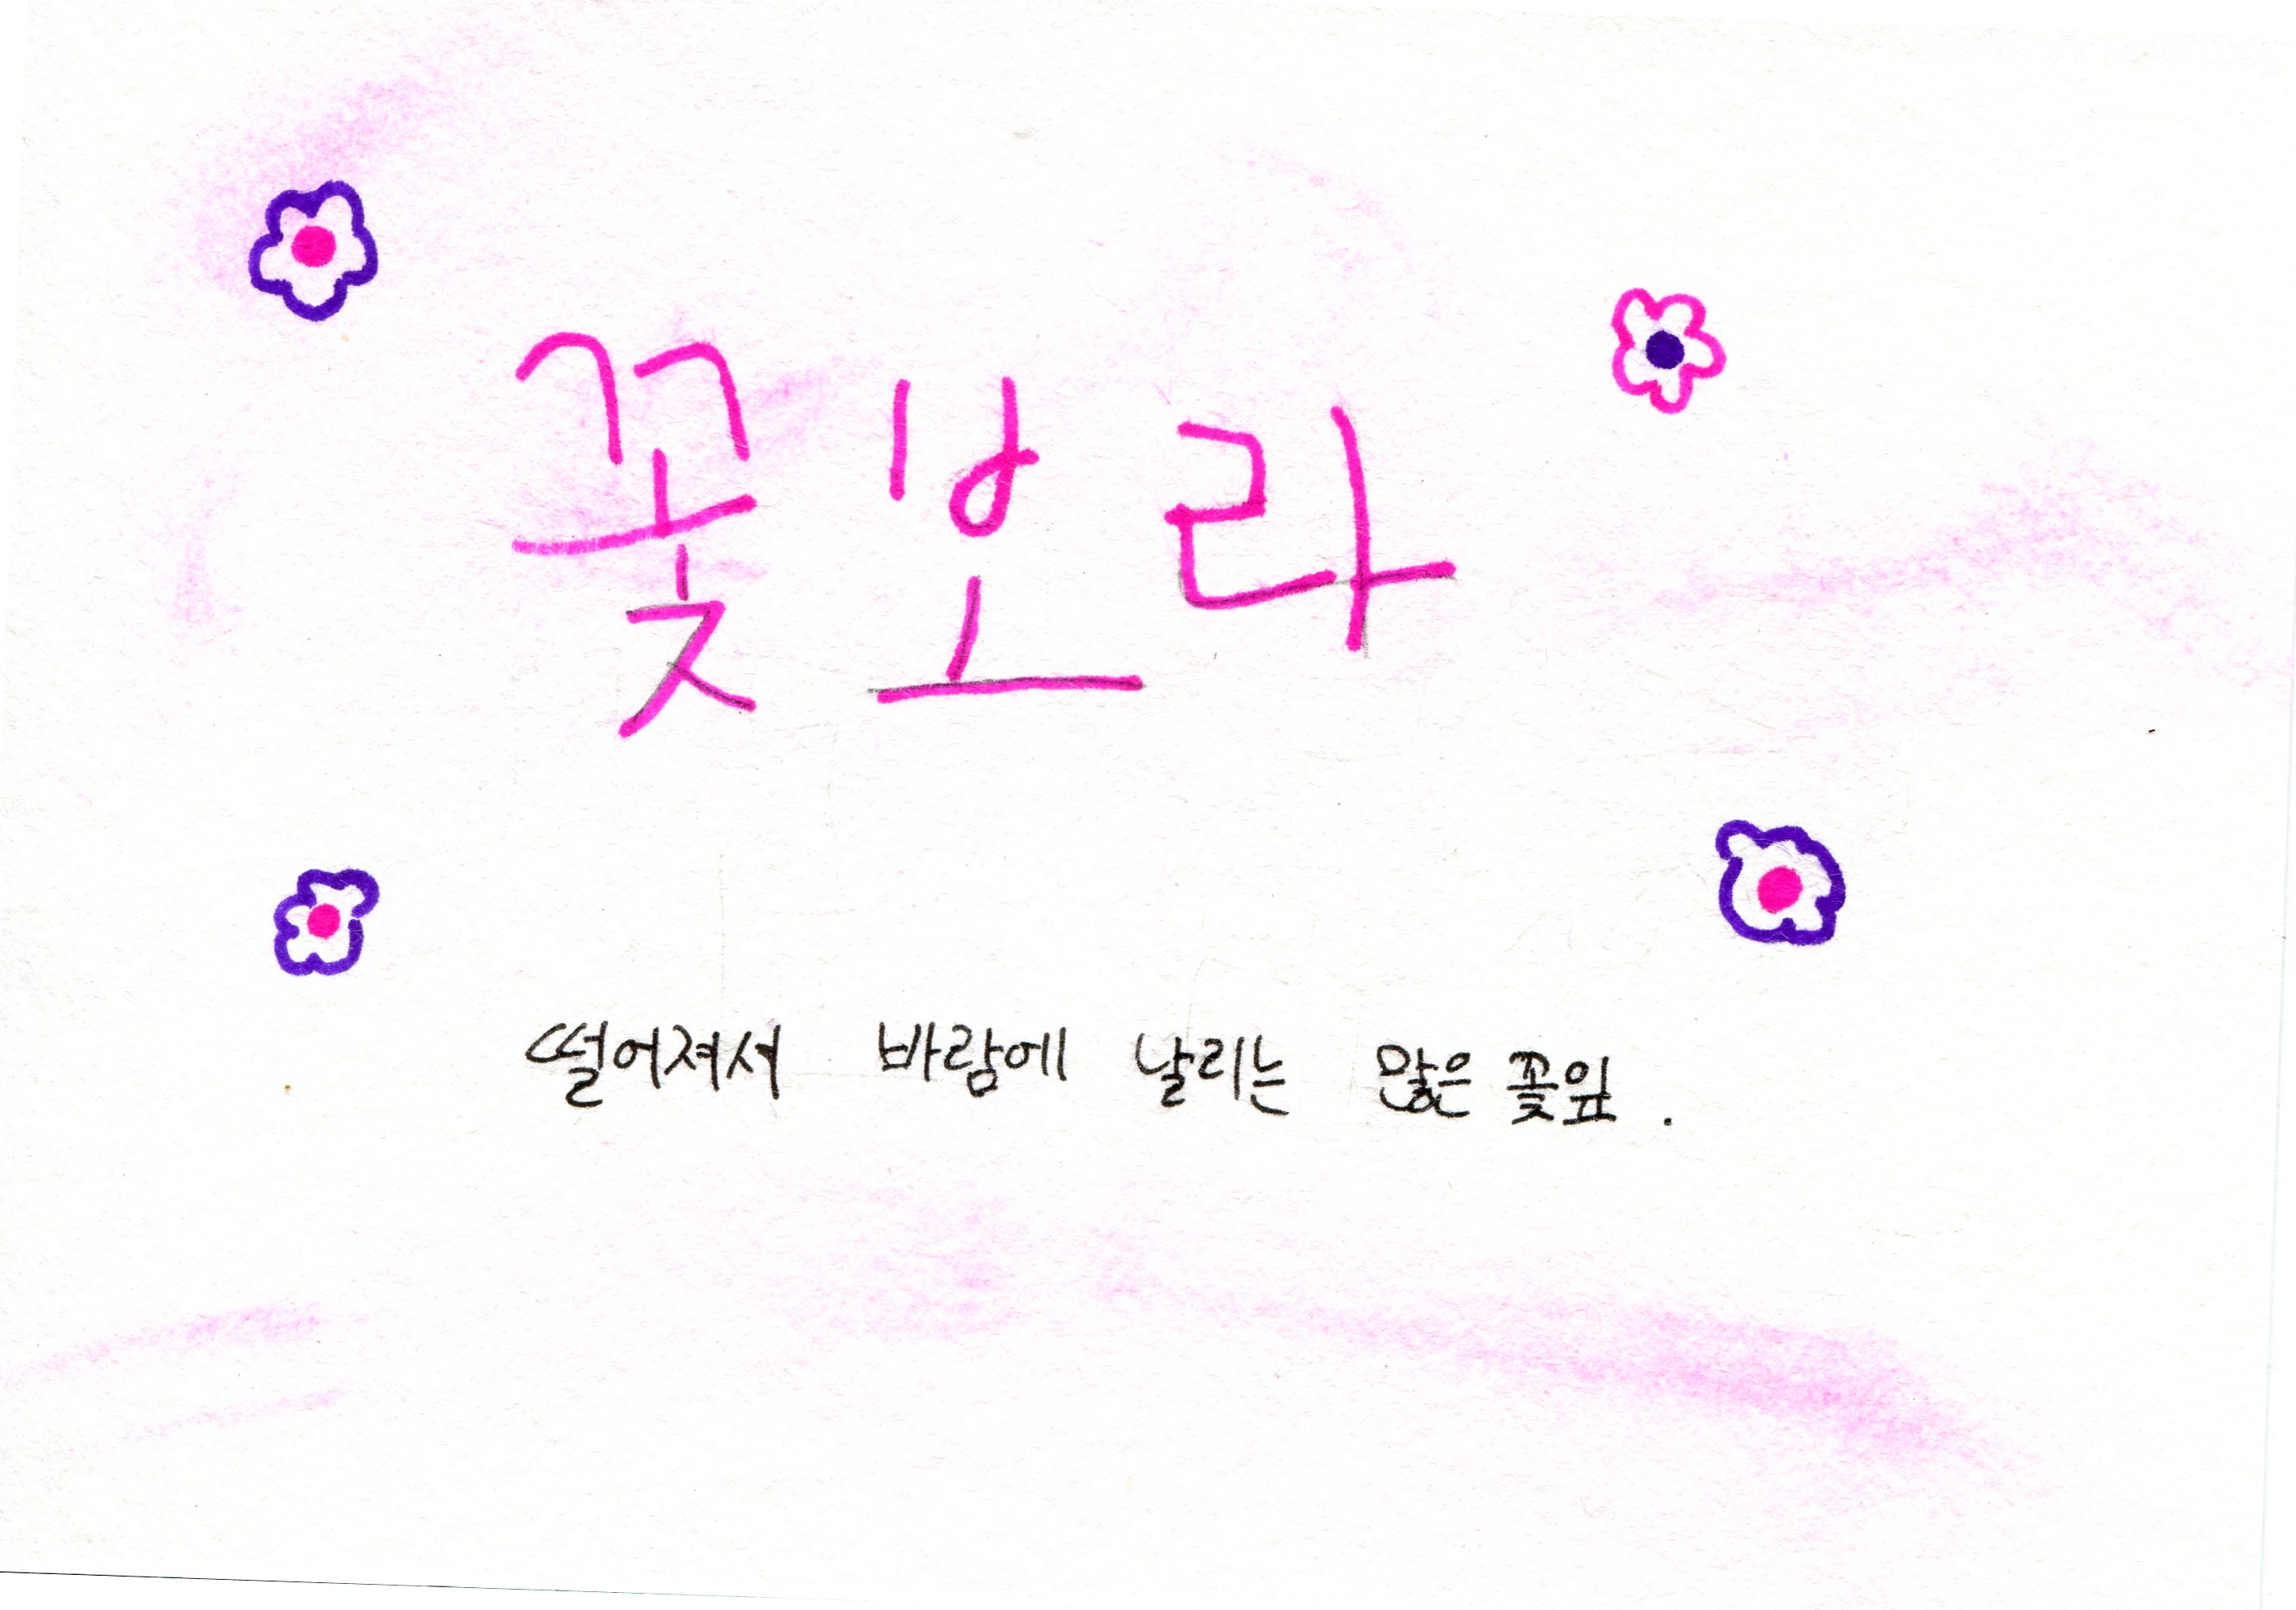 꽃보라
떨어져서 바람에 날리는 많은 꽃잎.